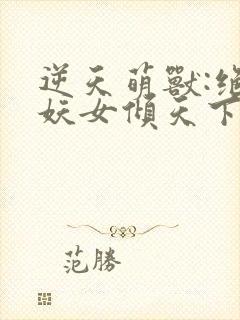 逆天萌獸:絕
妖女傾天下
范勝